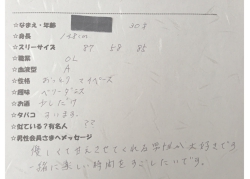 ☆なまえ・年齢 30才
☆身長 148cm
☆スリーサイズ 87 58 85
☆職業 OL
☆血液型 A
☆性格 おっとり マイペース
☆趣味 ベリーダンス
☆お酒 少しだけ
☆タバコ すいます
☆似ている?有名人 ??
☆男性会員さまへメッセージ
優しくて甘えさせてくれる男性が大好きです
一緒に楽しい時間をすごしたいです。